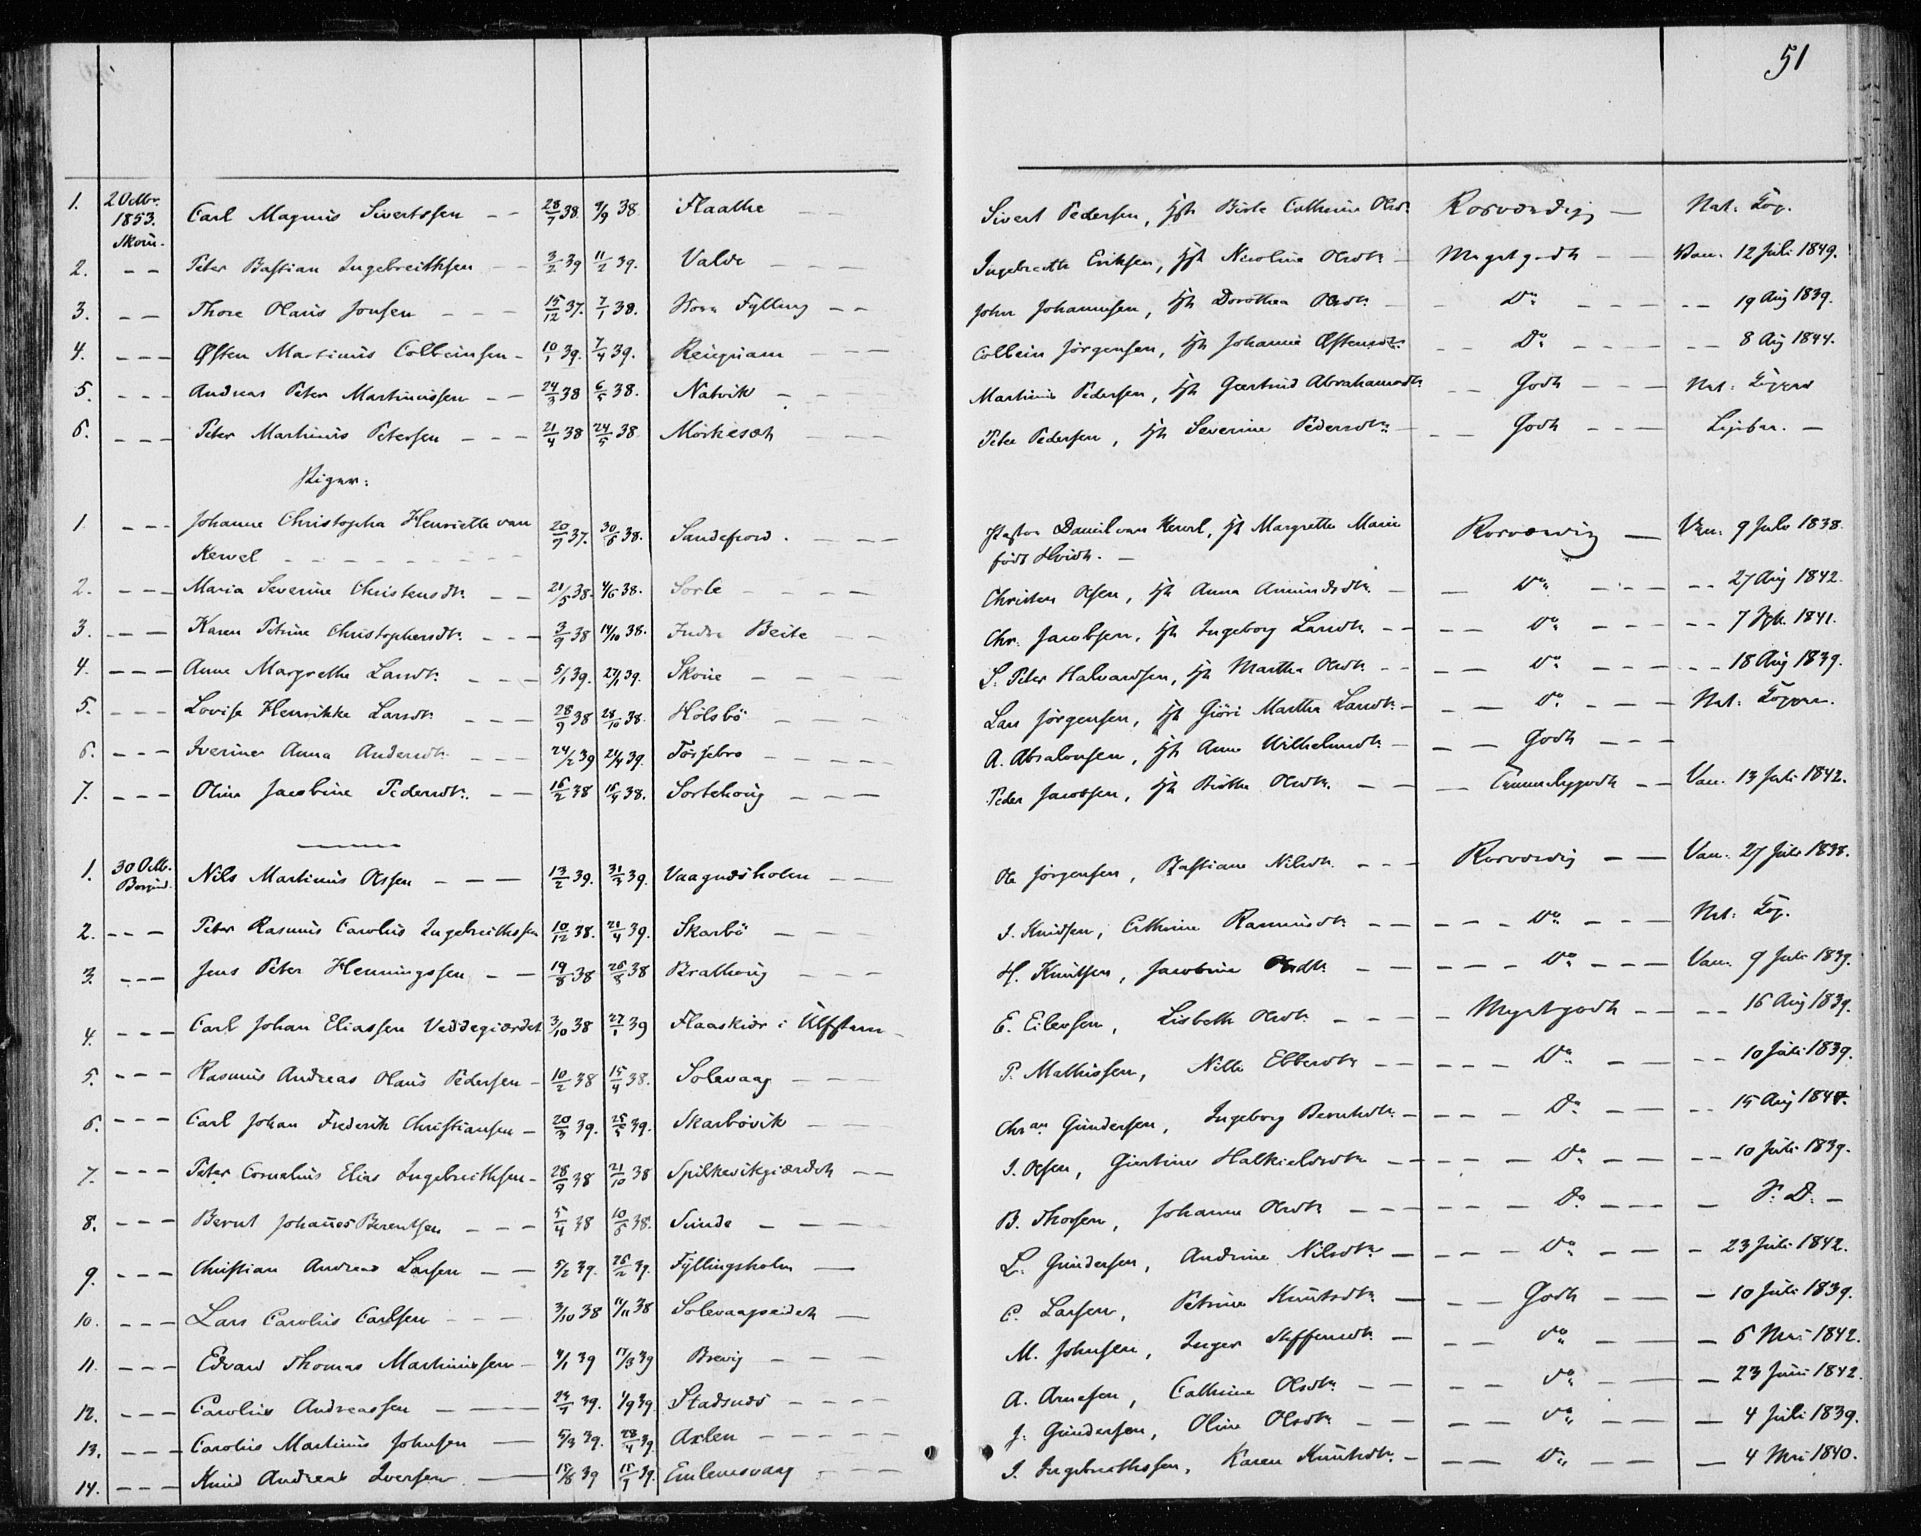 51
1. 2 Octbr. 1853. Skoue. Carl Magnus Sivertsen 28/7 38. 9/9 38 Flaathe Sivert Pedersen, Hst Birte Cathrine Olsdr. Rosværdig Nat: Kop.
2. Peter Bastian Ingebreithsen 3/2 39 11/2 39. Valde Ingebreth Eriksen, Hst Nicoline Olsdtr Meget godt Van. 12 Juli 1849.
3. Thore Olaus Jonsen 15/12 37. 7/1 38. Fylling John Johannesen, Hst Dorothea Olsdtr Do 19 Aug 1839.
4. Østen Martinus Colbeinsen 10/1 39. 7/4 39. Colbein Jørgensen, Hst Johanne Østensdtr Do 8 Aug 1844.
5. Andreas Peter Martinussen 24/3 38 6/5 38. Natvik Martinus Pedersen, Hst Gertrud Abrahamsdtr Godt Nat: Koppper
6. Peter Martinus Petersen 21/4 38 24/5 38. Mørkesæt Peter Pedersen, Hst Severine Pedersdtr Godt
Piger:
1. Johanne Christopha Henriette van 20/9 37. 30/6 38. Sandefiord. Pastor Daniel van Kervel, Hst Margrethe Marie Rosværdig Van. 9 Julv 1838.
Kervel født Hvidt.
2. Maria Severine Christensdtr 21/5 38. 4/6 38. Sorle Christen Olsen, Hst Anna Amundsdtr Do 27 Aug 1842.
3. Karen Petrine Christophersdtr 3/9 38 14/10 38. Indre Beite Chr. Jacobsen, Hst Ingeborg Larsdtr Do 7 Spt. 1841.
4. Anne Margrethe Larsdtr 5/1 39. 27/1 39. Skoue L. Peter Halvardsen, Hst Martha Olsdtr Do 18 Aug 1839.
5. Lovise Henrikke Larsdtr 28/9 38 28/10 38. Hølsbø Lars Jørgensen, Hst Giøri Martha Larsdtr Do Nat: Kopper.
6. Iverine Anna Andersdtr 24/2 39 21/4 39. A. Absalonsen, Hst Anne Wilhelmsdtr Godt
7. Oline Jacobine Pedersdtr 16/2 38 16/4 38. Sortehoug Peder Jacobsen, Hst Birthe Olsdtr Temmeliggodt Van. 13 Juli 1842.
1. 30 Octb. Borgund. Nils Martinus Olsen 13/2 39. 31/3 39. Vaagnæsholm Ole Jørgensen, Bastiane Nilsdtr Rosværdig Van. 27 Juli 1838.
2. Peter Rasmus Carolus Ingebreithsen 10/12 38. 21/4 39. Skarbø I. Knudsen, Cathrine Rasmusdtr Do Nat: Kop.
3. Jens Peter Henningsen 19/8 38 26/8 38 Brathoug H. Knutsen, Jacobine Olsdtr Do Van. 9 Juli 1839.
4. Carl Johan Eliassen Veddegiærdet 3/10 38 27/1 39 Flaaskiær i Ulfsten E. Eilevsen, Lisbeth Olsdtr Megetgodt 16 Aug 1839.
5. Rasmus Andreas Olaus Pedersen 10/2 38 15/4 38. Solevaag P. Mathissen, Nille Ebbesdtr Do 10 Juli 1839.
6. Carl Johan Frederik Christiansen 20/3 39. 25/5 39. Skarbøvik Chran Gundersen, Ingeborg Berntsdtr Do. 15 Aug 1844.
7. Peter Cornelius Elias Ingebreithsen 28/9 38 21/10 38 Spilkevikgiærdet I. Olsen, Giertine Halkieldsdtr Do. 10 Juli 1839.
8. Bernt Johañes Berentsen 5/4 38 10/5 38. Sunde B. Thorsen, Johanne Olsdtr Do. S. D.
9. Christian Andreas Larsen 5/2 39. 26/2 39. Fyllingsholm L. Gundersen, Andrine Nilsdtr Do 23 Juli 1842.
10. Lars Carolus Carlsen 3/10 38 11/11 38 Solevaagseidet C. Larsen, Petrine Knutsdtr Godt 10 Juli 1839.
11. Edvard Thomas Martinussen 4/1 39 17/3 39 Brevig M. Johnsen, Inger Steffensdtr Do 6 Mai 1842.
12. Carolus Andreassen 24/7 39. 1/9 39. Stadsnæs A. Arnesen, Cathrine Olsdtr Do 23 Juni 1842.
13. Carolus Martinus Johnsen 5/3 39. 28/4 39. Axlen J. Gundersen, Oline Olsdtr Do 4 Juli 1839.
14. Knud Andreas Iversen 15/8 39 15/9 39. Emlemsvaag I. Ingebrethsen, Karen Knutsdtr Do 4 Mai 1840.